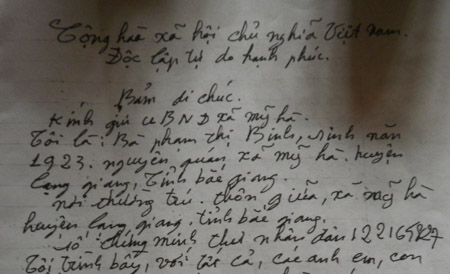 Cộng hoà xã hội chủ nghĩa Việt nam.
Độc lập tự do hạnh phúc.
Bản di chúc.
Kính gửi UBND xã mỹ hà.
Tôi là: Bà phạm thị Bình, sinh năm
1923. nguyên quán xã mỹ hà. huyện
lạng giang, tỉnh bắc giang.
nơi thường trú. thôn giữa, xã mỹ hà
huyện lạng giang, tỉnh bắc giang.
số chứng minh thư nhân dân
Tôi trình bầy, với tất cả, các anh em, con